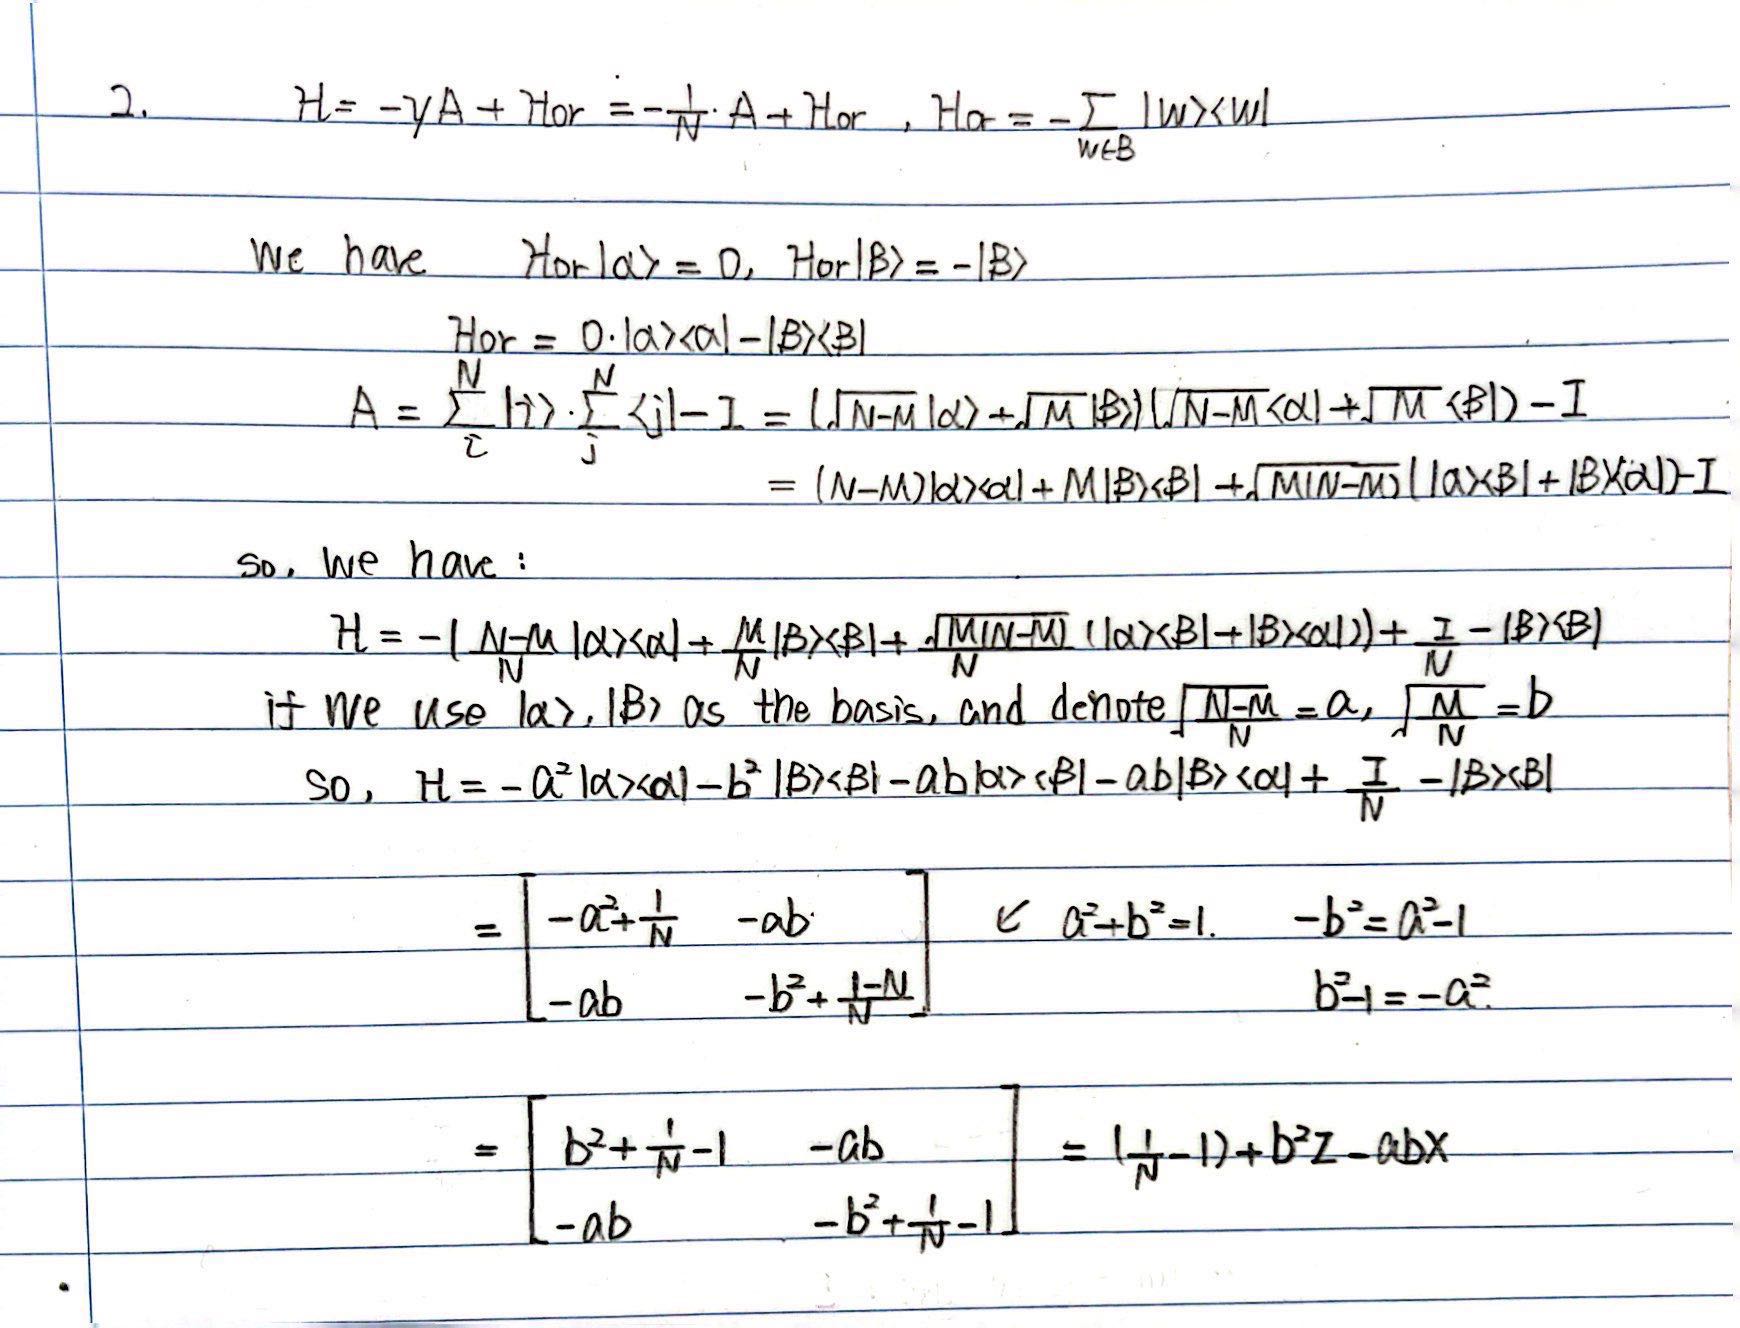 2. H = -γA + Hor = -1/N · A + Hor , Hor = -∑_{w∈B} |w><w|
We have Hor|α> = 0, Hor|β> = -|β>
Hor = 0·|α><α| - |β><β|
A = ∑_i^N |i> · ∑_j^N <j| - I = (√(N-M)|α> + √M|β>)(√(N-M)<α| + √M<β|) - I
= (N-M)|α><α| + M|β><β| + √(M(N-M))(|α><β| + |β><α|) - I
so, we have :
H = -( (N-M)/N |α><α| + M/N |β><β| + √(M(N-M))/N (|α><β| + |β><α|)) + I/N - |β><β|
if we use |α>, |β> as the basis, and denote √((N-M)/N) = a, √(M/N) = b
so, H = -a²|α><α| - b²|β><β| - ab|α><β| - ab|β><α| + I/N - |β><β|
= [ -a²+1/N  -ab ] ↙ a²+b²=1. -b²=a²-1
[ -ab  -b²+(1-N)/N ] b²-1=-a².
= [ b²+1/N-1  -ab ] = (1/N-1)+b²Z-abX
[ -ab  -b²+1/N-1 ]